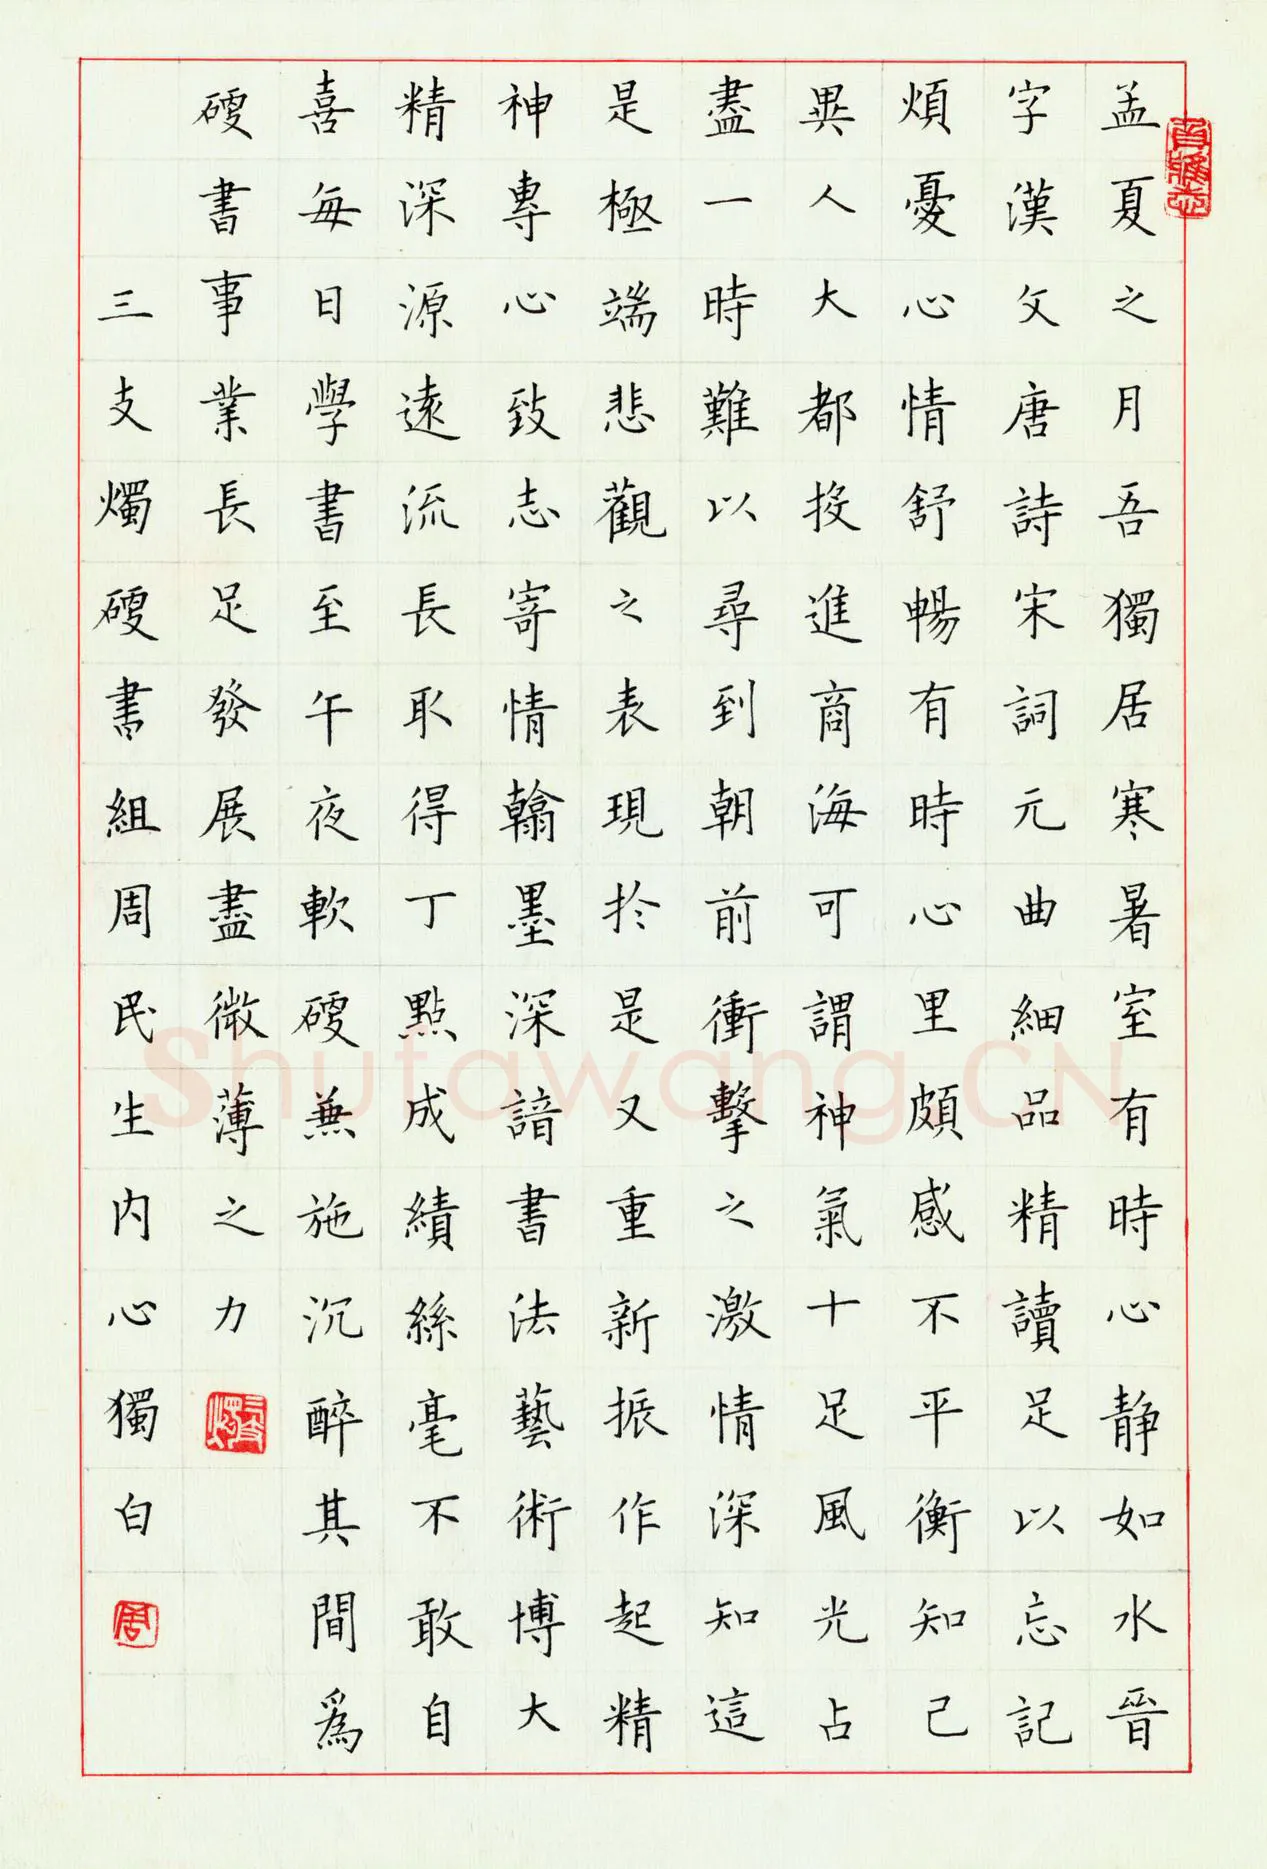 孟夏之月吾獨居寒暑室有時心静如水晉
字漢文唐詩宋詞元曲細品精讀足以忘記
煩憂心情舒暢有時心里頗感不平衡知己
異人大都投進商海可謂神氣十足風光占
盡一時難以尋到朝前衝擊之激情深知這
是極端悲觀之表現於是又重新振作起精
神專心致志寄情翰墨深諳書法藝術博大
精深源遠流長取得丁點成績絲毫不敢自
喜每日學書至午夜軟硬兼施沉醉其間爲
硬書事業長足發展盡微薄之力
三支燭硬書組周民生内心獨白
Shufawang.CN